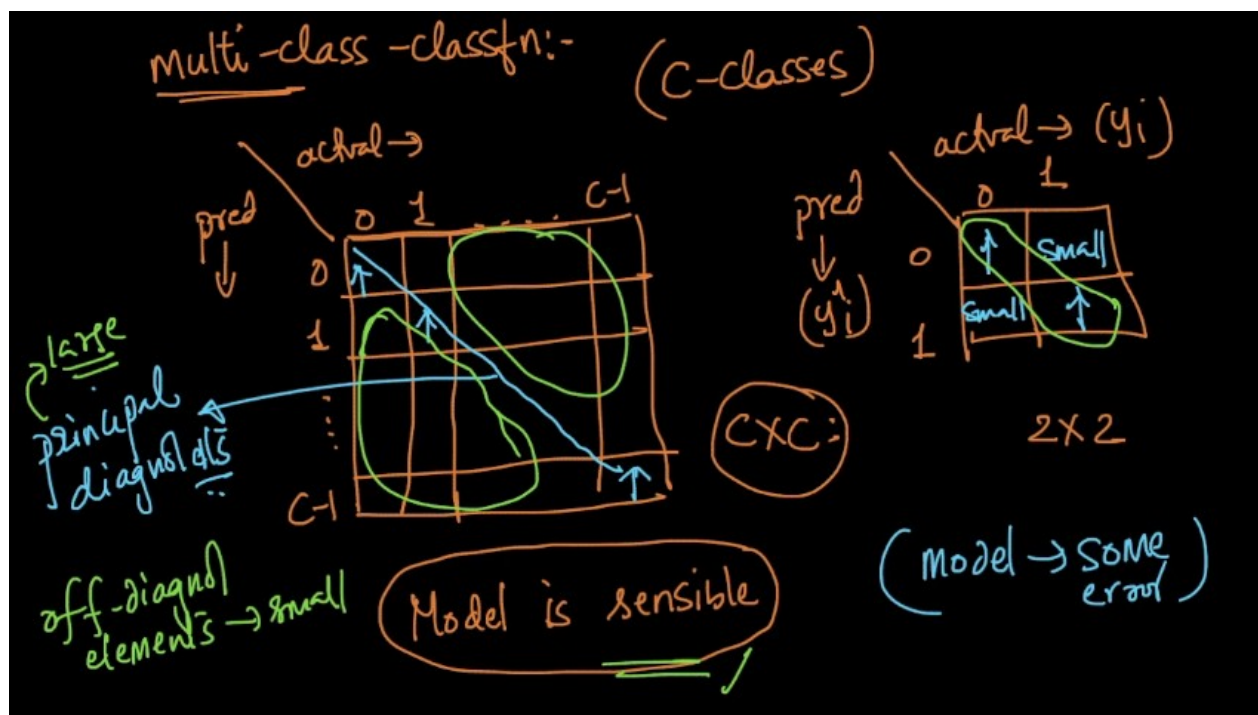 multi-class-classfn:-
(C-classes)
actual →
pred ↓
0 1 ..... C-1
0
1
⋮
C-1
large
principal
diagnol els
off-diagnol
elements → small
Model is sensible
CXC:
actual → (yi)
pred ↓
(ŷi)
0 1
0
small
small
1
2X2
(model → some
error)